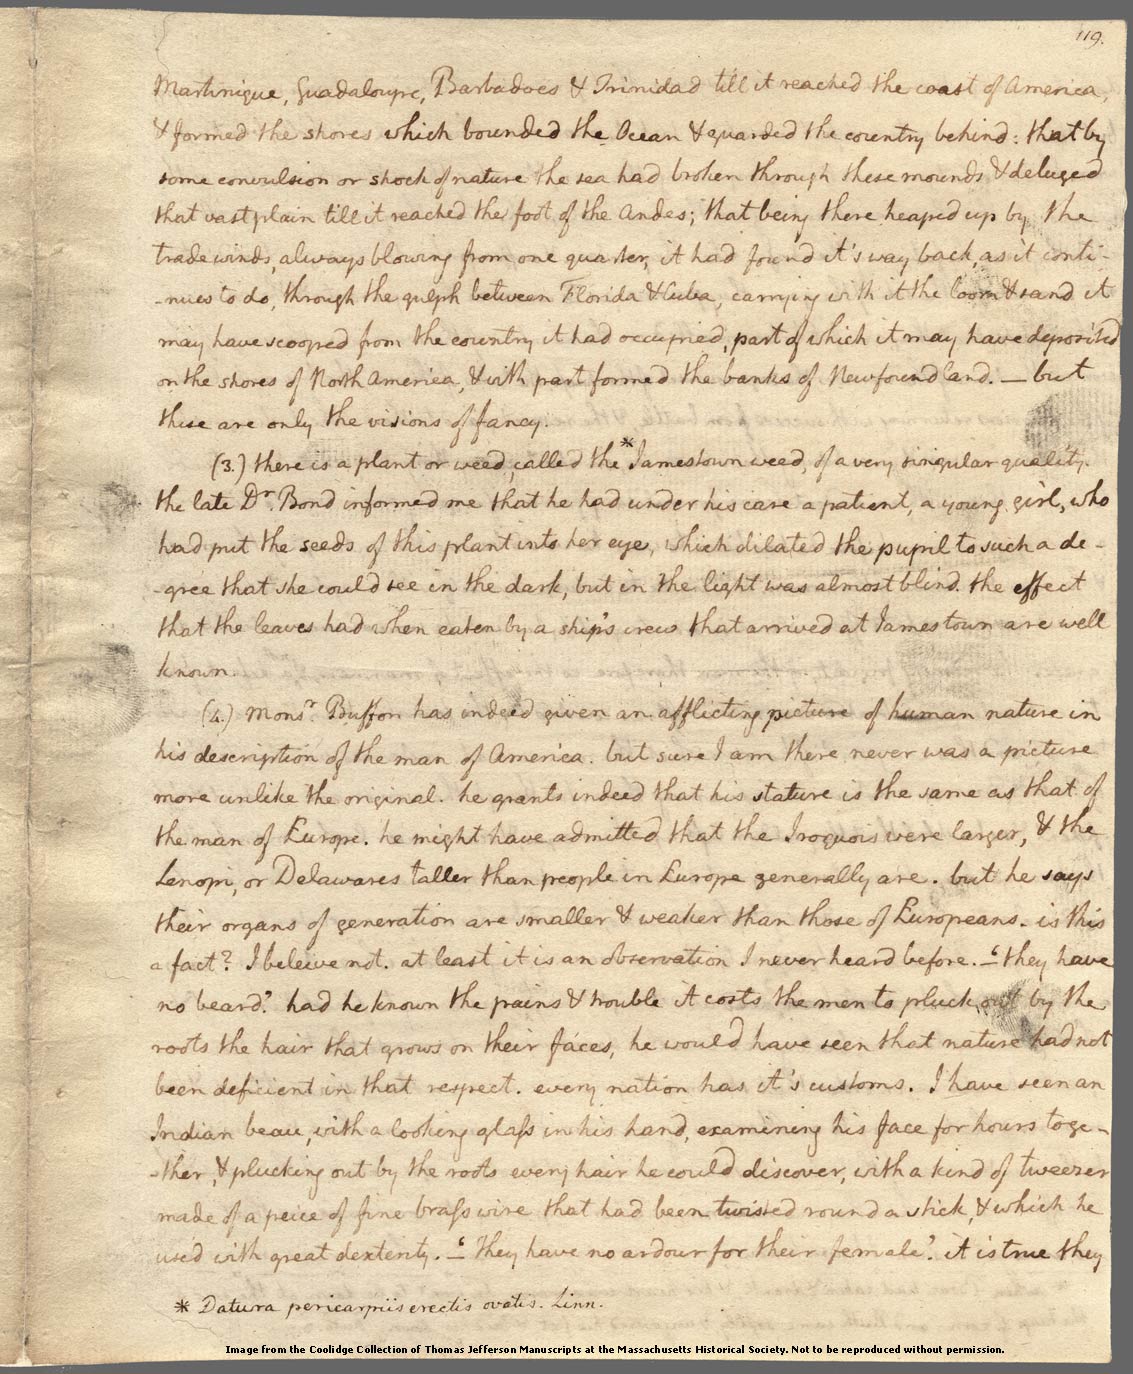 119.
Martinique, Guadaloupe, Barbadoes & Trinidad till it reached the coast of America,
& formed the shores which bounded the Ocean & guarded the country behind: that by
some convulsion or shock of nature the sea had broken through these mounds & deluged
that vast plain till it reached the foot of the Andes; that being there heaped up by the
trade winds, always blowing from one quarter, it had found it's way back, as it conti-
-nues to do, through the gulph between Florida & Cuba, carrying with it the loom & sand it
may have scooped from the country it had occupied, part of which it may have deposited
on the shores of North America, & with part formed the banks of Newfoundland. — but
these are only the visions of fancy.
(3.) there is a plant or weed, called the *Jamestown weed, of a very singular quality.
the late Dr. Bond informed me that he had under his care a patient, a young girl, who
had put the seeds of this plant into her eye, which dilated the pupil to such a de-
-gree that she could see in the dark, but in the light was almost blind. the effect
that the leaves had when eaten by a ship's crew that arrived at Jamestown are well
known.
(4.) Monsr. Buffon has indeed given an afflicting picture of human nature in
his description of the man of America. but sure I am there never was a picture
more unlike the original. he grants indeed that his stature is the same as that of
the man of Europe. he might have admitted that the Iroquois were larger, & the
Lenopi, or Delawares taller than people in Europe generally are. but he says
their organs of generation are smaller & weaker than those of Europeans. is this
a fact? I beleive not. at least it is an observation I never heard before. — 'they have
no beard.' had he known the pains & trouble it costs the men to pluck out by the
roots the hair that grows on their faces, he would have seen that nature had not
been deficient in that respect. every nation has it's customs. I have seen an
Indian beau, with a looking glass in his hand, examining his face for hours toge-
-ther, & plucking out by the roots every hair he could discover, with a kind of tweezer
made of a peice of fine brass wire that had been twisted round a stick, & which he
used with great dexterity. — 'they have no ardour for their female.' it is true they
* Datura pericarpiis erectis ovatis. Linn.
Image from the Coolidge Collection of Thomas Jefferson Manuscripts at the Massachusetts Historical Society. Not to be reproduced without permission.